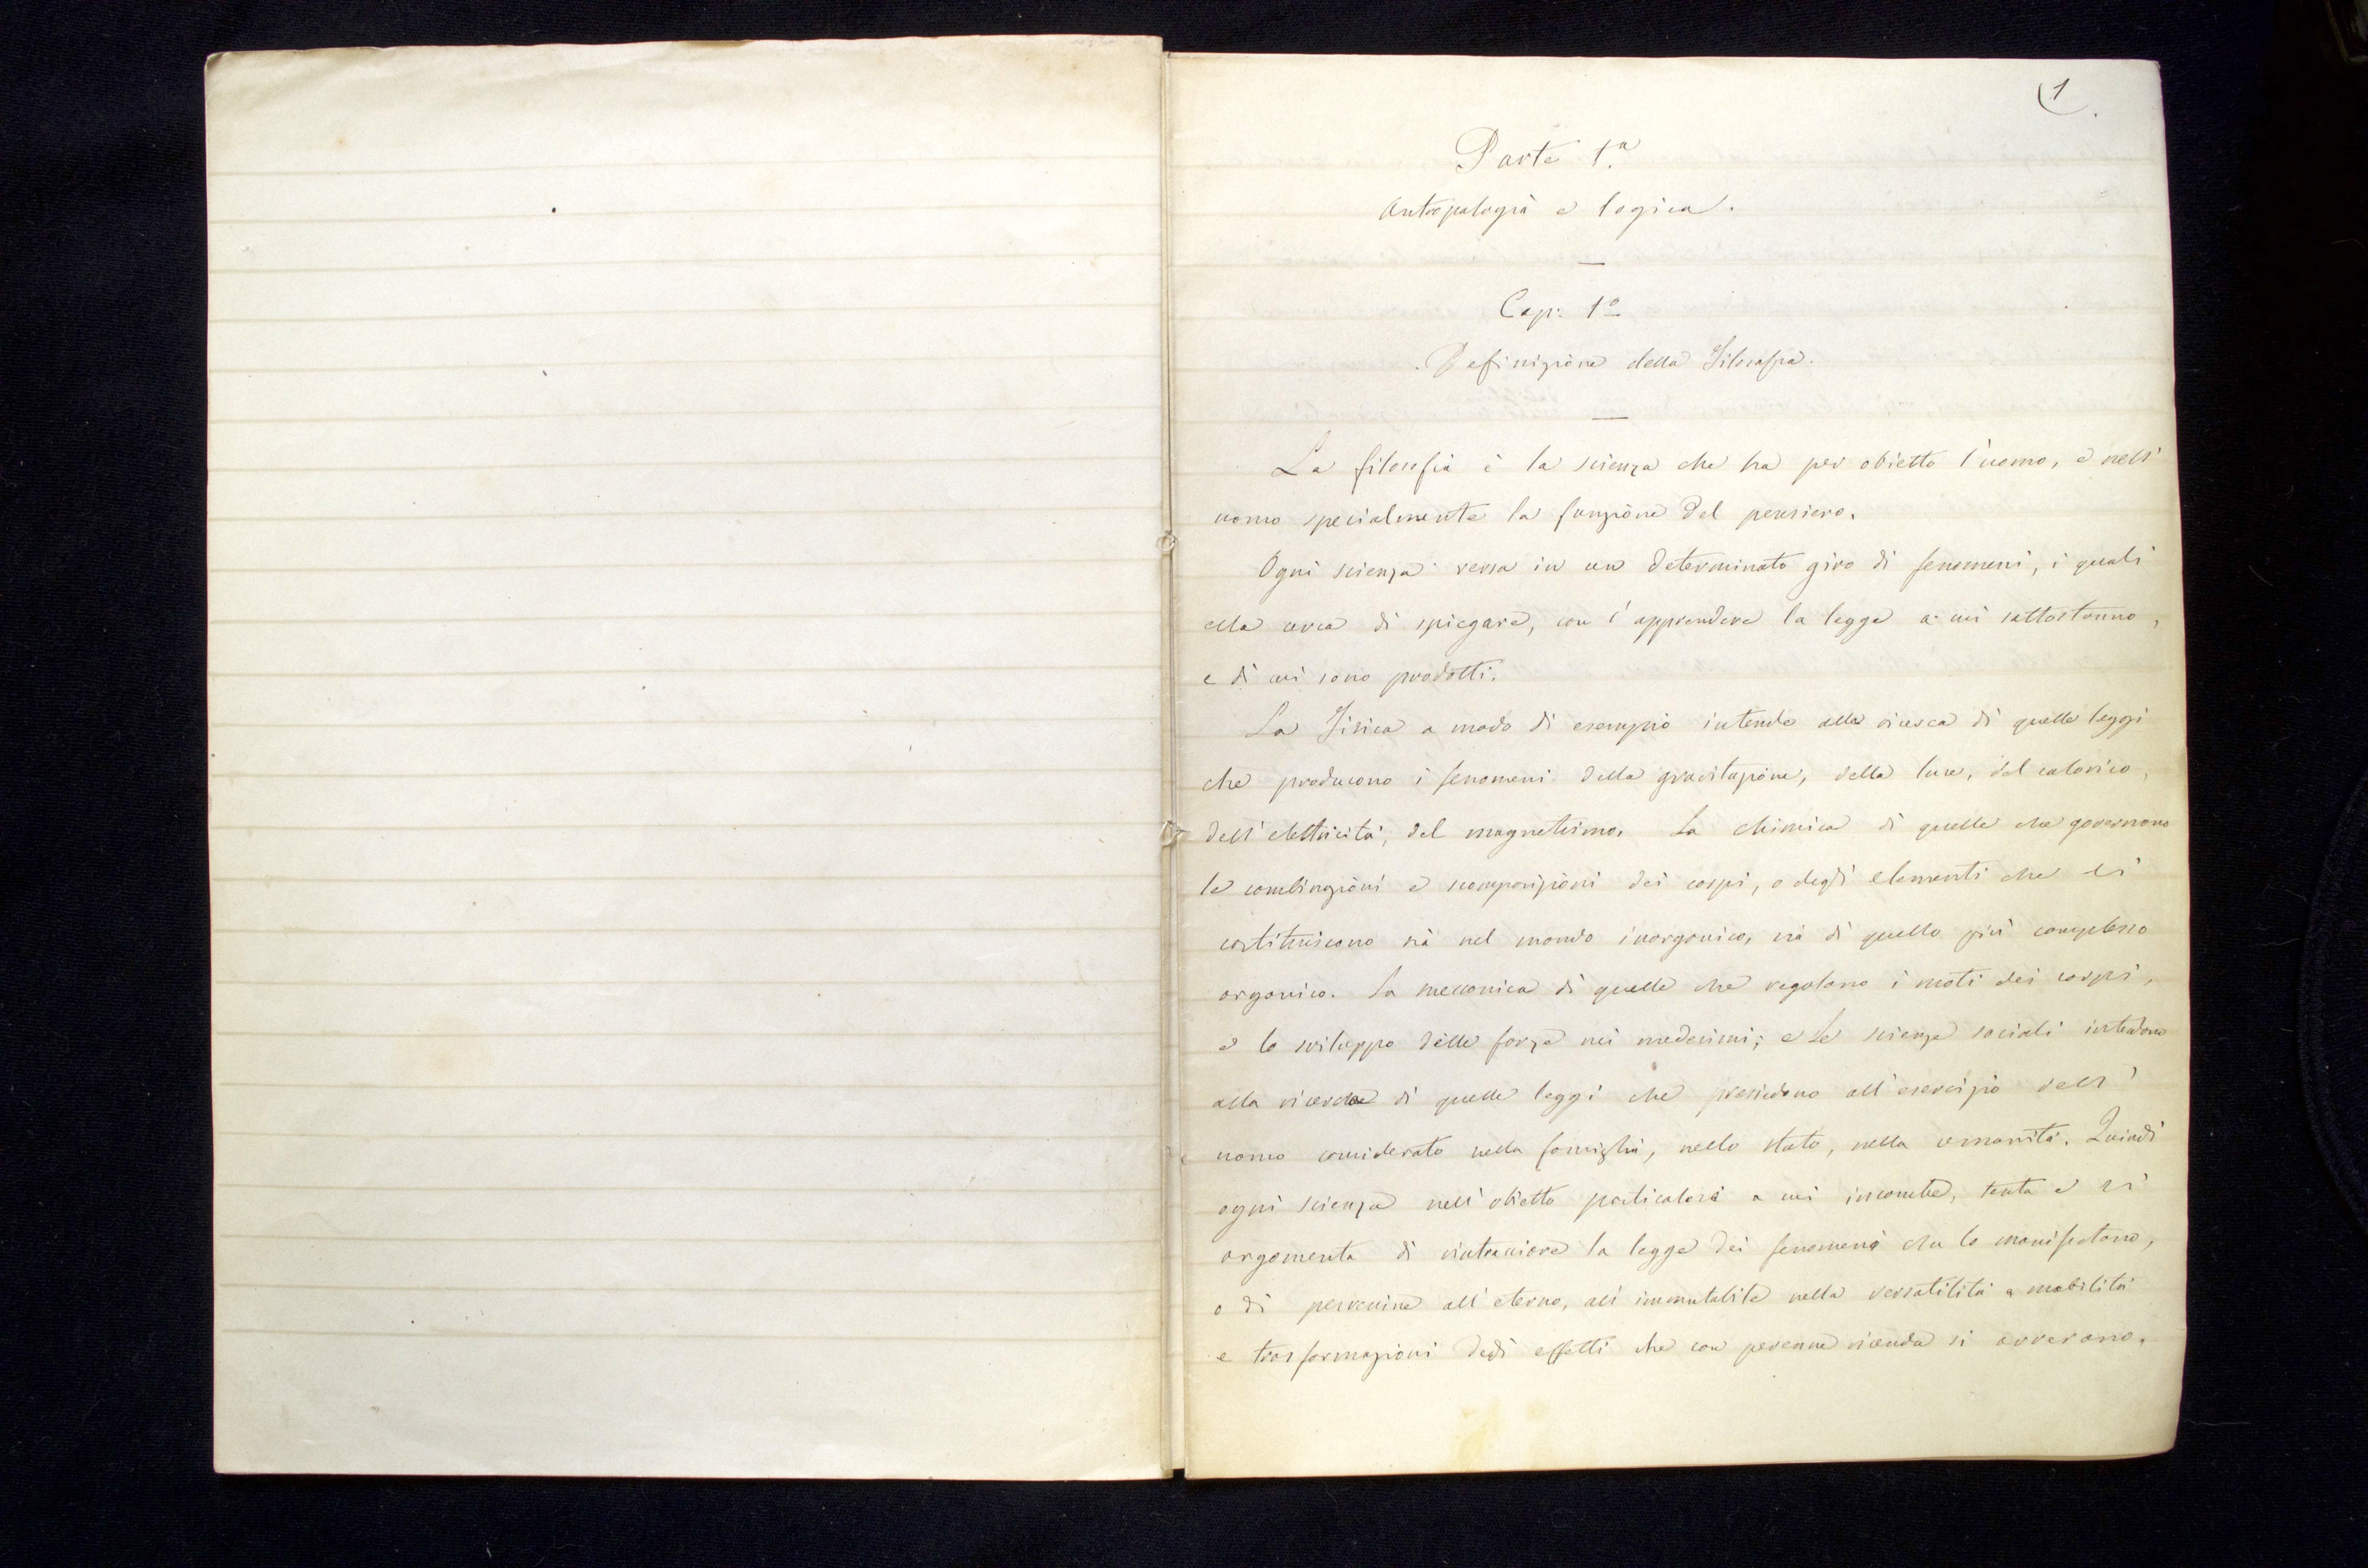 1
Parte 1.a
Antropologia e logica.
Cap: 1o
Definizione della Filosofia.
La filosofia è la scienza che ha per obietto l'uomo, e nell'
uomo specialmente la funzione del pensiero.
Ogni scienza versa in un determinato giro di fenomeni, i quali
ella cerca di spiegare, con l'apprendere la legge a cui sottostanno,
e di cui sono prodotti.
La Fisica a modo di esempio intende alla ricerca di quelle leggi
che producono i fenomeni della gravitazione, della luce, del calorico,
dell'elettricità, del magnetismo. La chimica di quelle che governano
le combinazioni e scomposizioni dei corpi, o degli elementi che li
costituiscono sia nel mondo inorganico, sia di quello più complesso
organico. La meccanica di quelle che regolano i moti dei corpi,
e lo sviluppo delle forze nei medesimi; e le scienze sociali intendono
alla ricerca di quelle leggi che presiedono all'esercizio dell'
uomo considerato nella famiglia, nello stato, nella umanità. Quindi
ogni scienza nell'obietto particolare a cui incombe, tenta e si
argomenta di rintracciare la legge dei fenomeni che lo manifestano,
o di pervenire all'eterno, all'immutabile nella versatilità e mobilità
e trasformazioni degli effetti che con perenne vicenda si avverano.